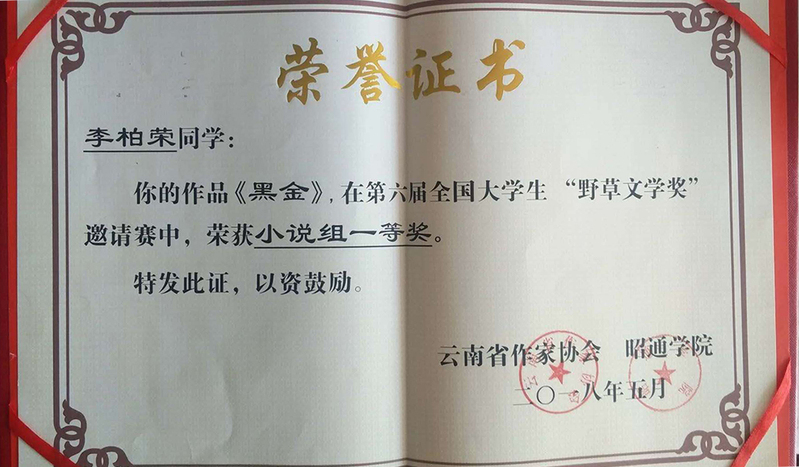 荣誉证书
李柏荣同学：
你的作品《黑金》，在第六届全国大学生“野草文学奖”
邀请赛中，荣获小说组一等奖。
特发此证，以资鼓励。
云南省作家协会 昭通学院
二〇一八年五月